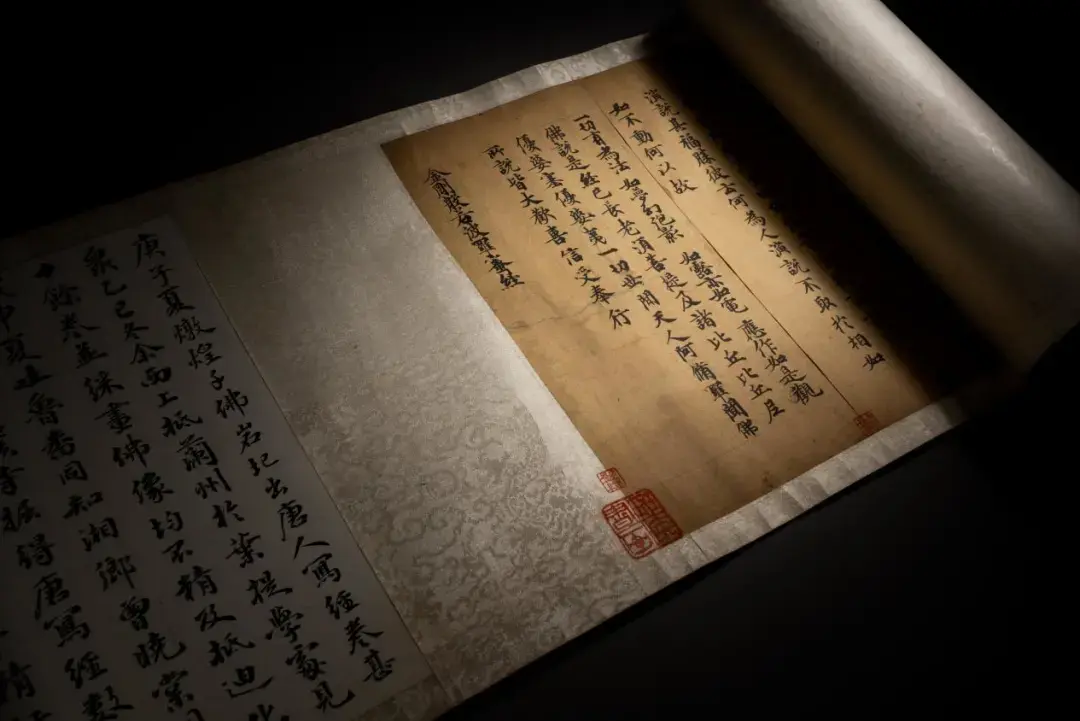 演說其福勝彼云何為人演說不取於相如
如不動何以故
一切有為法 如夢幻泡影 如露亦如電 應作如是觀
佛說是經已長老須菩提及諸比丘比丘尼
優婆塞優婆夷一切世間天人阿脩羅聞佛
所說皆大歡喜信受奉行
金剛般若波羅蜜經
庚子夏燉煌千佛岩圮出唐人寫經卷甚
眾乙巳冬余西上抵蘭州於葉提學家見
餘卷並綵畫佛像均不精及抵迪化
申夏吐魯番同知湘鄉曾曉棠
掘得唐寫經數
精